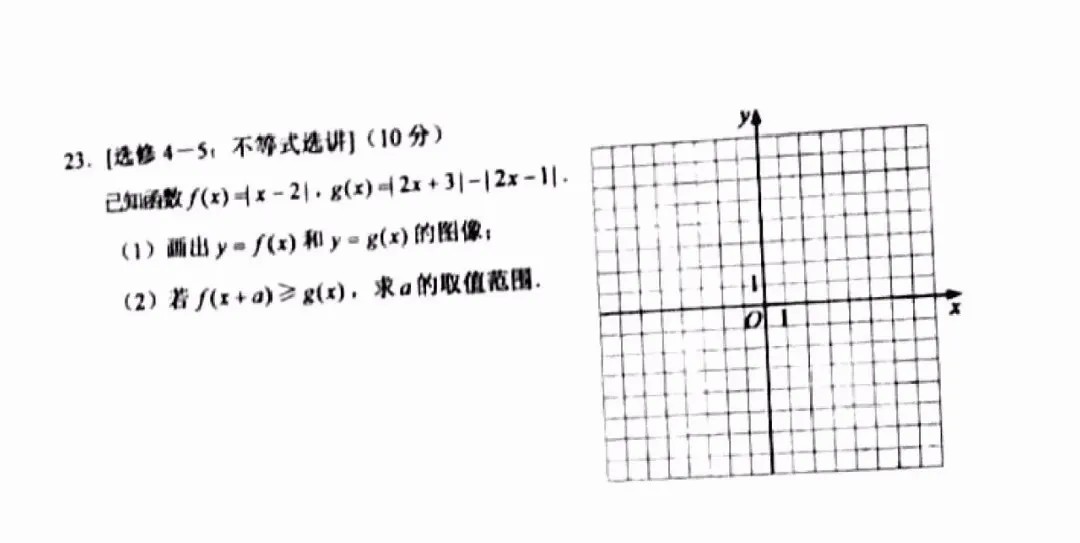 23. [选修 4-5:不等式选讲](10 分)
已知函数 f(x)=|x-2|,g(x)=|2x+3|-|2x-1|.
(1)画出 y=f(x) 和 y=g(x) 的图像;
(2)若 f(x+a)≥g(x),求 a 的取值范围.
y
1
O 1
x